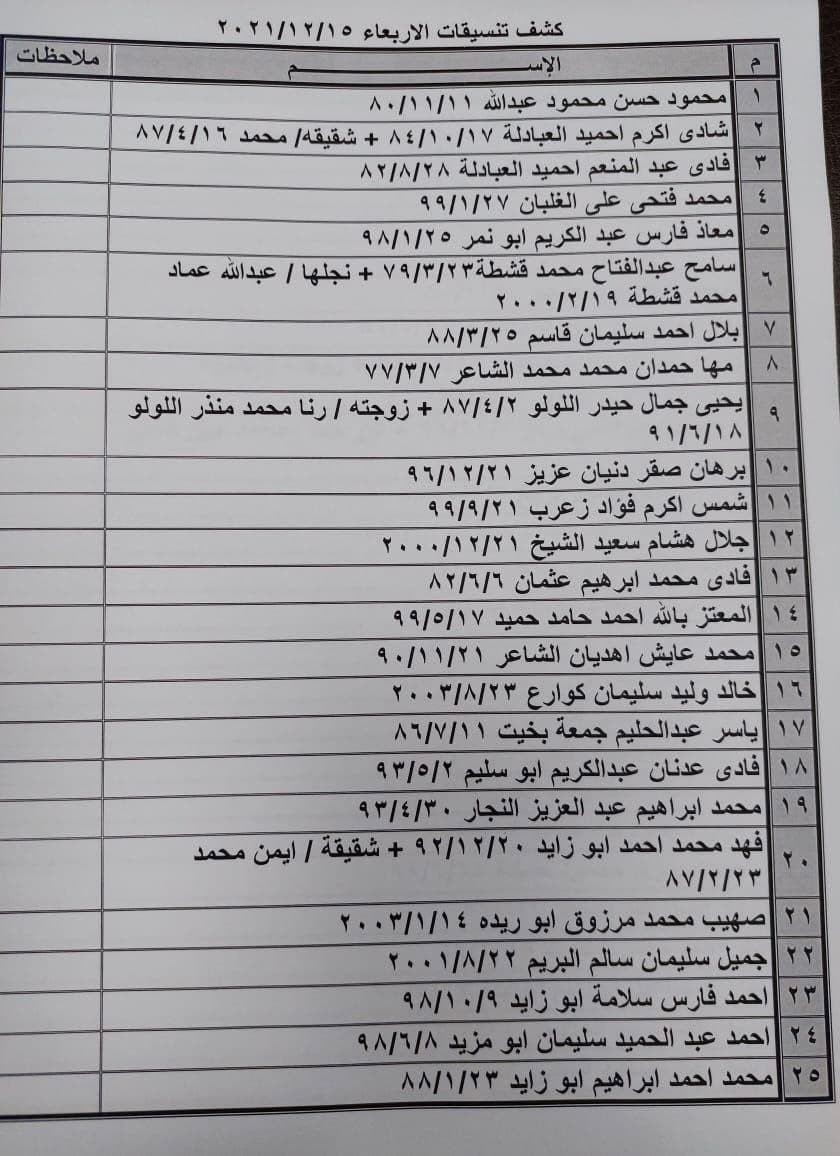 كشف تنسيقات الاربعاء ٢٠٢١/١٢/١٥
م الإســـم ملاحظات
١ محمود حسن محمود عبدالله ٨٠/١١/١١
٢ شادى اكرم احميد العبادلة ٨٤/١٠/١٧ + شقيقه/ محمد ٨٧/٤/١٦
٣ فادى عبد المنعم احميد العبادلة ٨٢/٨/٢٨
٤ محمد فتحى على الغلبان ٩٩/١/٢٧
٥ معاذ فارس عبد الكريم ابو نمر ٩٨/١/٢٥
٦ سامح عبدالفتاح محمد قشطة٧٩/٣/٢٣ + نجلها / عبدالله عماد
محمد قشطة ٢٠٠٠/٢/١٩
٧ بلال احمد سليمان قاسم ٨٨/٣/٢٥
٨ مها حمدان محمد محمد الشاعر ٧٧/٣/٧
٩ يحيى جمال حيدر اللولو ٨٧/٤/٢ + زوجته / رنا محمد منذر اللولو
٩١/٦/١٨
١٠ برهان صقر دنيان عزيز ٩٦/١٢/٢١
١١ شمس اكرم فؤاد زعرب ٩٩/٩/٢١
١٢ جلال هشام سعيد الشيخ ٢٠٠٠/١٢/٢١
١٣ فادى محمد ابرهيم عثمان ٨٢/٦/٦
١٤ المعتز بالله احمد حامد حميد ٩٩/٥/١٧
١٥ محمد عايش اهديان الشاعر ٩٠/١١/٢١
١٦ خالد وليد سليمان كوارع ٢٠٠٣/٨/٢٣
١٧ ياسر عبدالحليم جمعة بخيت ٨٦/٧/١١
١٨ فادى عدنان عبدالكريم ابو سليم ٩٣/٥/٢
١٩ محمد ابراهيم عبد العزيز النجار ٩٣/٤/٣٠
٢٠ فهد محمد احمد ابو زايد ٩٢/١٢/٢٠ + شقيقة / ايمن محمد
٨٧/٢/٢٣
٢١ صهيب محمد مرزوق ابو ريده ٢٠٠٣/١/١٤
٢٢ جميل سليمان سالم البريم ٢٠٠١/٨/٢٢
٢٣ احمد فارس سلامة ابو زايد ٩٨/١٠/٩
٢٤ احمد عبد الحميد سليمان ابو مزيد ٩٨/٦/٨
٢٥ محمد احمد ابراهيم ابو زايد ٨٨/١/٢٣